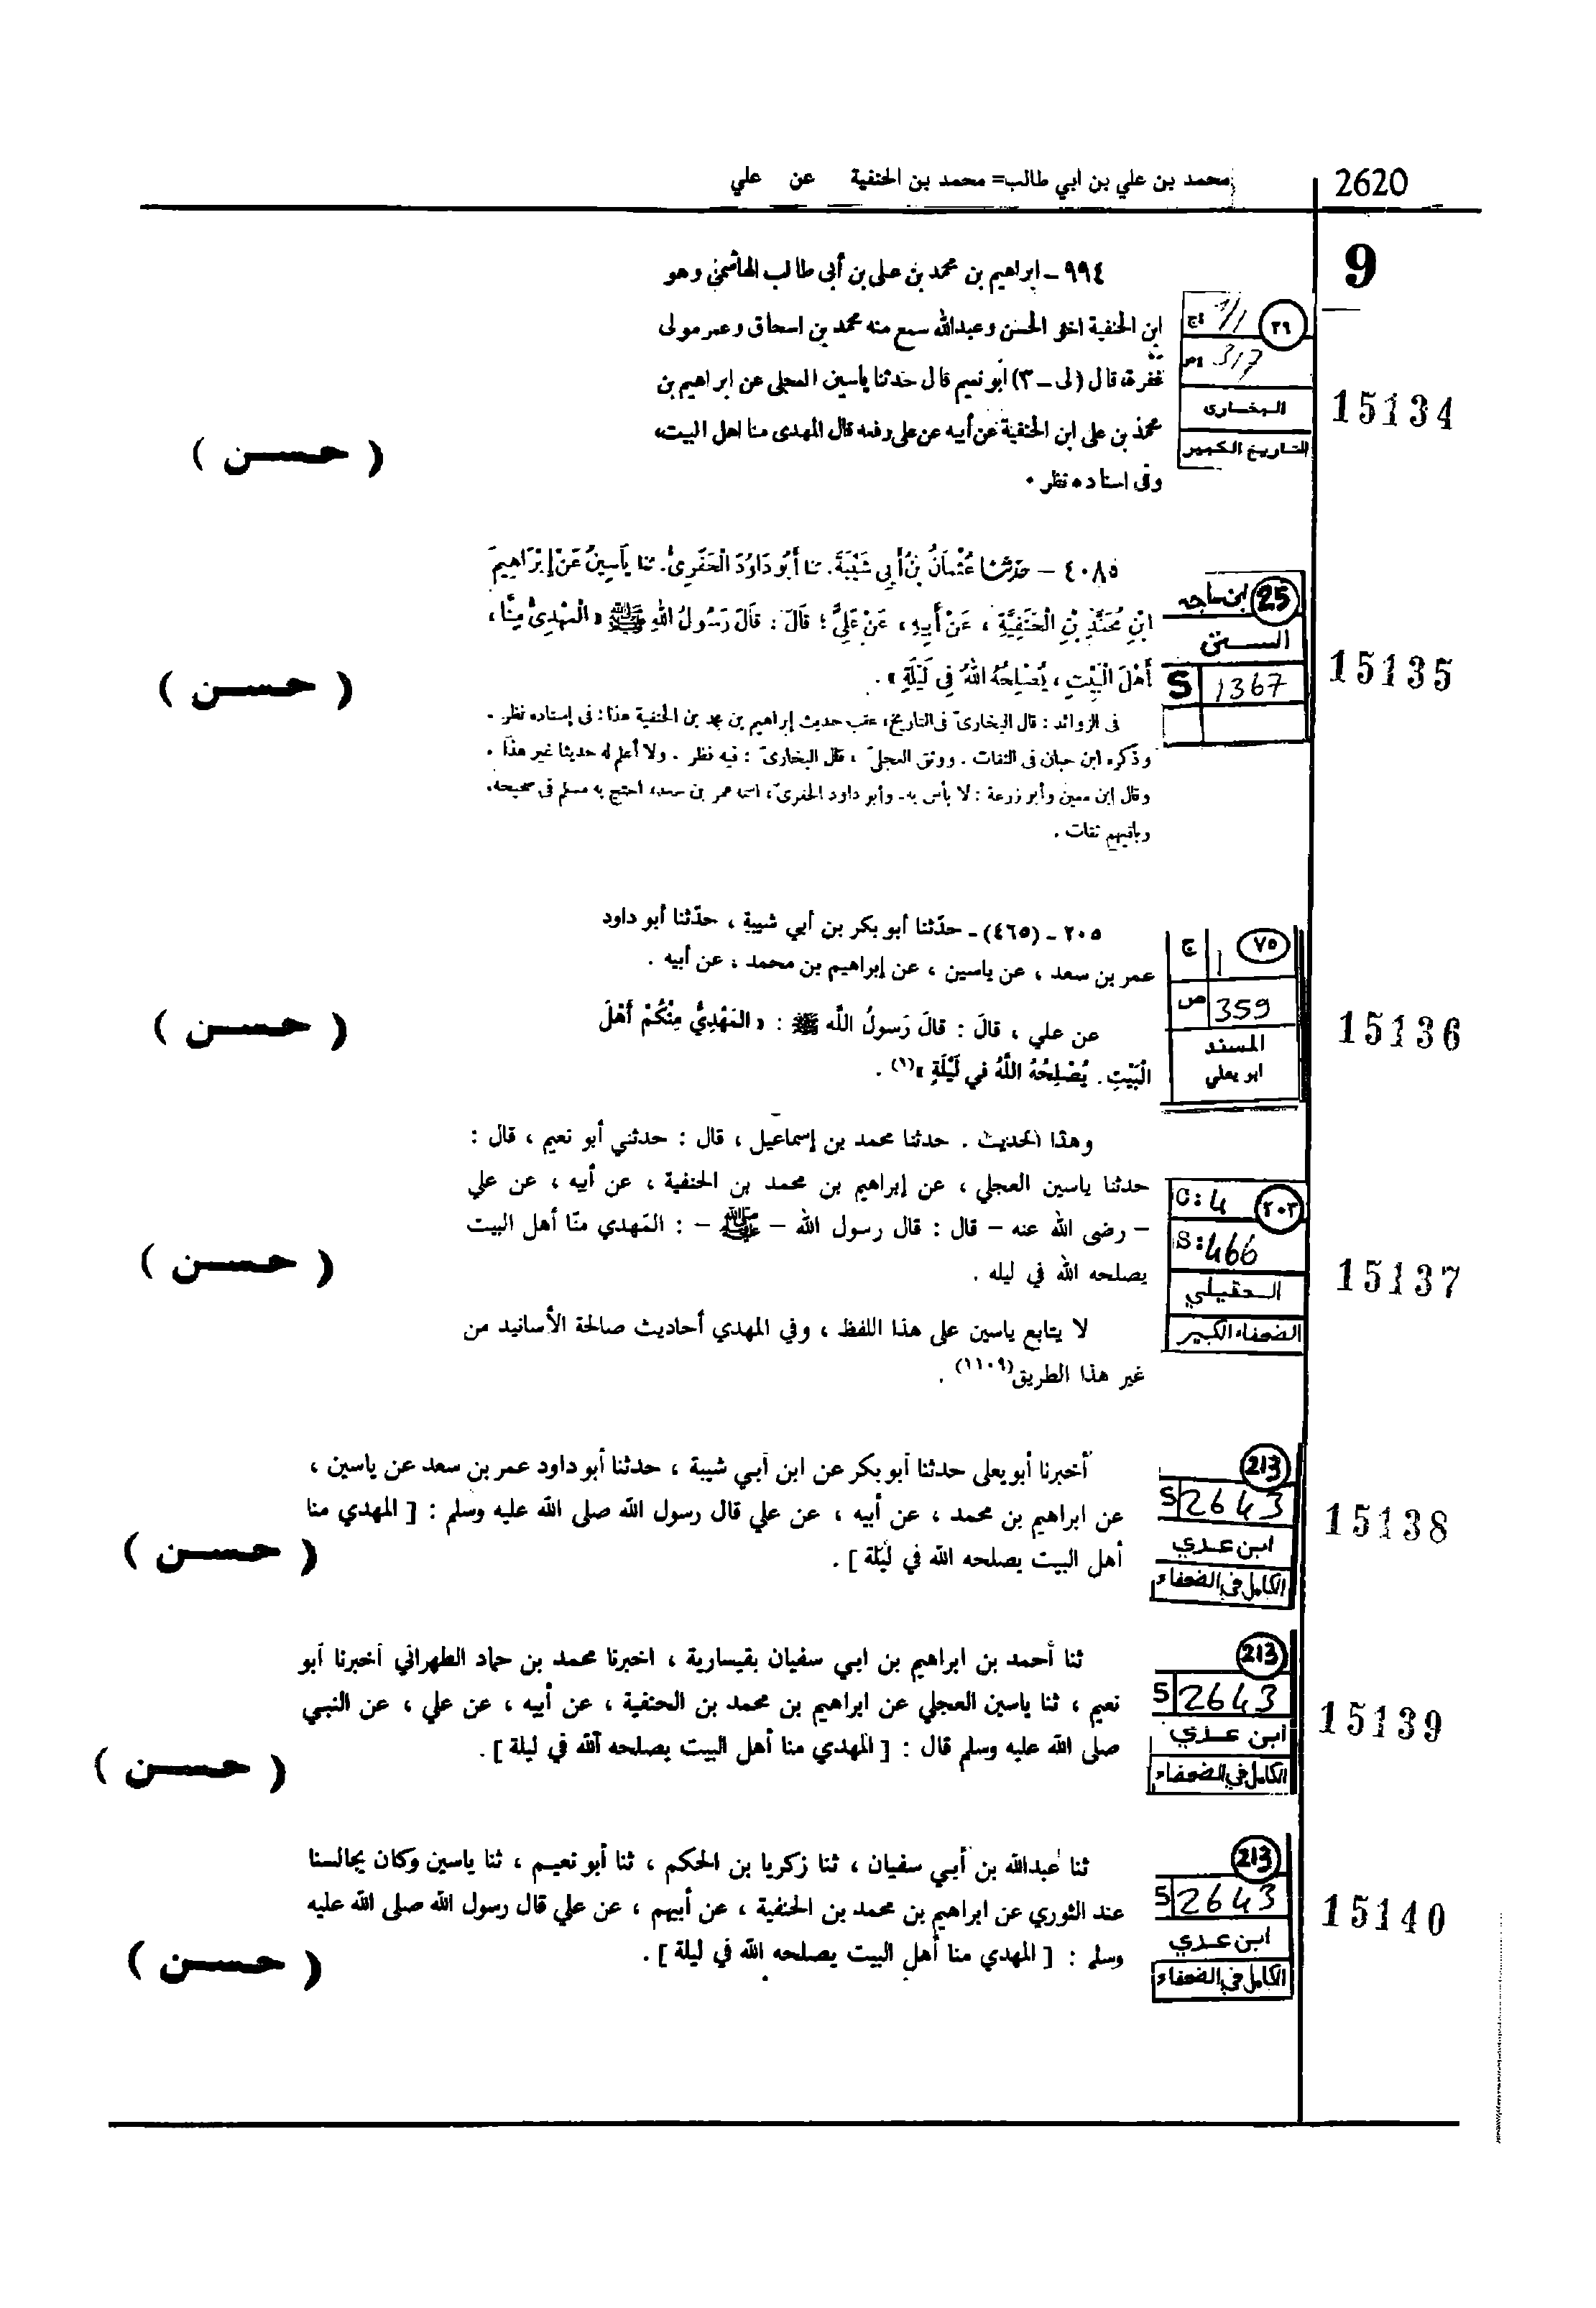 2620
محمد بن علي بن ابي طالب= محمد بن الحنفية عن علي
9
٩٩٤ ـ ابراهيم بن محمد بن على بن أبى طالب الهاشمى وهو
ابن الحنفية اخو الحسن وعبدالله سمع منه محمد بن اسحاق وعمر مولى
غفرة، قال (لى ـ ٣) أبو نعيم قال حدثنا ياسين العجلى عن ابراهيم بن
محمد بن على ابن الحنفية عن أبيه عن على رفعه قال المهدى منا اهل البيت،
وفى اسناده نظر ٠
٢٩
ج 1/1
ص 317
البخارى
التاريخ الكبير
15134
( حسن )
٤٠٨٥ – حدثنا عُثْمَانُ بْنُ أَبِي شَيْبَةَ. ثنا أَبُو دَاوُدَ الْحَفَرِىُّ. ثنا يَاسِينُ عَنْ إِبْرَاهِيمَ
ابْنِ مُحَمَّدِ بْنِ الْحَنَفِيَّةِ ، عَنْ أَبِيهِ ، عَنْ عَلِيٍّ ؛ قَالَ : قَالَ رَسُولُ اللهِ ﷺ « الْمَهْدِىُّ مِنَّا ،
أَهْلَ الْبَيْتِ ، يُصْلِحُهُ اللهُ فِى لَيْلَةٍ » .
فى الزوائد : قال البخارىّ فى التاريخ، عقب حديث إبراهيم بن محمد بن الحنفية هذا : فى إسناده نظر .
وذكره ابن حبان فى الثقات . ووثق العجلىّ ، قال البخارىّ : فيه نظر . ولا أعلم له حديثا غير هذا .
وقال ابن معين وأبو زرعة : لا بأس به . وأبو داود الحفرىّ، اسمه عمر بن سعد، احتج به مسلم فى صحيحه.
وباقيهم ثقات .
25
ابن ماجه
السنن
S 1367
15135
( حسن )
٢٠٥ ـ (٤٦٥) ـ حدّثنا أبو بكر بن أبي شيبة ، حدّثنا أبو داود
عمر بن سعد ، عن ياسين ، عن إبراهيم بن محمد ، عن أبيه .
عن علي ، قالَ : قالَ رَسولُ اللَّه ﷺ : « المَهْدِيُّ مِنْكُمْ أَهْلَ
الْبَيْتِ . يُصْلِحُهُ اللَّهُ في لَيْلَةٍ »(١) .
٧٥
ج 1
ص 359
المسند
ابو يعلي
15136
( حسن )
وهذا الحديث . حدثنا محمد بن إسماعيل ، قال : حدثني أبو نعيم ، قال :
حدثنا ياسين العجلي ، عن إبراهيم بن محمد بن الحنفية ، عن أبيه ، عن علي
– رضى الله عنه – قال : قال رسول الله – ﷺ – : المَهدي منّا أهل البيت
يصلحه الله في ليله .
لا يتابع ياسين على هذا اللفظ ، وفي المهدي أحاديث صالحة الأسانيد من
غير هذا الطريق(١١٠٩) .
٢٠٣
C:4
S:466
العقيلي
الضعفاء الكبير
15137
( حسن )
أخبرنا أبو يعلى حدثنا أبو بكر عن ابن أبي شيبة ، حدثنا أبو داود عمر بن سعد عن ياسين ،
عن ابراهيم بن محمد ، عن أبيه ، عن علي قال رسول الله صلى الله عليه وسلم : [ المهدي منا
أهل البيت يصلحه الله في ليلة ] .
213
S 2643
ابن عدي
الكامل في الضعفاء
15138
( حسن )
ثنا أحمد بن ابراهيم بن ابي سفيان بقيسارية ، اخبرنا محمد بن حماد الطهراني أخبرنا أبو
نعيم ، ثنا ياسين العجلي عن ابراهيم بن محمد بن الحنفية ، عن أبيه ، عن علي ، عن النبي
صلى الله عليه وسلم قال : [ المهدي منا أهل البيت يصلحه الله في ليلة ] .
213
S 2643
ابن عدي
الكامل في الضعفاء
15139
( حسن )
ثنا عبدالله بن أبي سفيان ، ثنا زكريا بن الحكم ، ثنا أبو نعيم ، ثنا ياسين وكان يجالسنا
عند الثوري عن ابراهيم بن محمد بن الحنفية ، عن أبيهم ، عن علي قال رسول الله صلى الله عليه
وسلم : [ المهدي منا أهل البيت يصلحه الله في ليلة ] .
213
S 2643
ابن عدي
الكامل في الضعفاء
15140
( حسن )